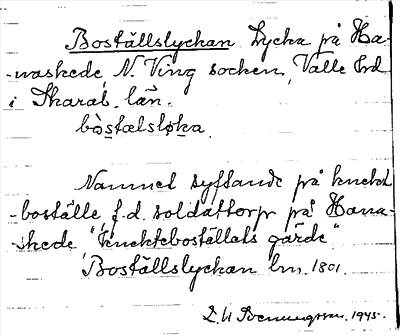 Boställslyckan. Lycka på Ha-
-naskede, N. Ving socken, Valle hrd
i Skarab. län.
bòstælsløka.
Namnet syftande på knekt
-boställe f.d. soldattorp på Hana-
-skede "Knektebostället gärde"
Boställslyckan lm. 1801.
1945.